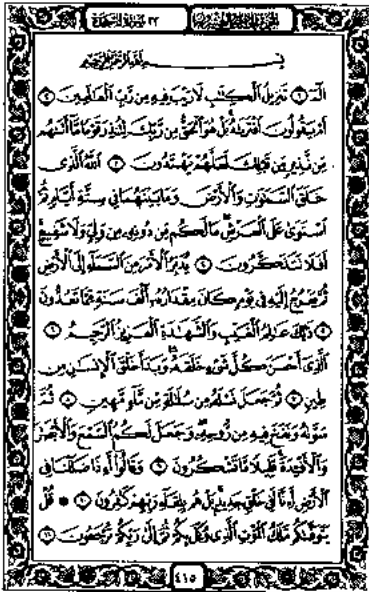 سُورَةُ السَّجْدَةِ
بِسْمِ ٱللَّهِ ٱلرَّحْمَٰنِ ٱلرَّحِيمِ
الٓمٓ ۝١ تَنزِيلُ ٱلْكِتَٰبِ لَا رَيْبَ فِيهِ مِن رَّبِّ ٱلْعَٰلَمِينَ ۝٢
أَمْ يَقُولُونَ ٱفْتَرَىٰهُ ۚ بَلْ هُوَ ٱلْحَقُّ مِن رَّبِّكَ لِتُنذِرَ قَوْمًا مَّآ أَتَىٰهُم
مِّن نَّذِيرٍ مِّن قَبْلِكَ لَعَلَّهُمْ يَهْتَدُونَ ۝٣ ٱللَّهُ ٱلَّذِى
خَلَقَ ٱلسَّمَٰوَٰتِ وَٱلْأَرْضَ وَمَا بَيْنَهُمَا فِى سِتَّةِ أَيَّامٍ ثُمَّ
ٱسْتَوَىٰ عَلَى ٱلْعَرْشِ ۖ مَا لَكُم مِّن دُونِهِۦ مِن وَلِىٍّ وَلَا شَفِيعٍ ۚ
أَفَلَا تَتَذَكَّرُونَ ۝٤ يُدَبِّرُ ٱلْأَمْرَ مِنَ ٱلسَّمَآءِ إِلَى ٱلْأَرْضِ
ثُمَّ يَعْرُجُ إِلَيْهِ فِى يَوْمٍ كَانَ مِقْدَارُهُۥٓ أَلْفَ سَنَةٍ مِّمَّا تَعُدُّونَ
۝٥ ذَٰلِكَ عَٰلِمُ ٱلْغَيْبِ وَٱلشَّهَٰدَةِ ٱلْعَزِيزُ ٱلرَّحِيمُ ۝٦
ٱلَّذِىٓ أَحْسَنَ كُلَّ شَىْءٍ خَلَقَهُۥ ۖ وَبَدَأَ خَلْقَ ٱلْإِنسَٰنِ مِن
طِينٍ ۝٧ ثُمَّ جَعَلَ نَسْلَهُۥ مِن سُلَٰلَةٍ مِّن مَّآءٍ مَّهِينٍ ۝٨ ثُمَّ
سَوَّىٰهُ وَنَفَخَ فِيهِ مِن رُّوحِهِۦ ۖ وَجَعَلَ لَكُمُ ٱلسَّمْعَ وَٱلْأَبْصَٰرَ
وَٱلْأَفْـِٔدَةَ ۚ قَلِيلًا مَّا تَشْكُرُونَ ۝٩ وَقَالُوٓا۟ أَءِذَا ضَلَلْنَا فِى
ٱلْأَرْضِ أَءِنَّا لَفِى خَلْقٍ جَدِيدٍۭ ۚ بَلْ هُم بِلِقَآءِ رَبِّهِمْ كَٰفِرُونَ ۝١٠ ۞ قُلْ
يَتَوَفَّىٰكُم مَّلَكُ ٱلْمَوْتِ ٱلَّذِى وُكِّلَ بِكُمْ ثُمَّ إِلَىٰ رَبِّكُمْ تُرْجَعُونَ ۝١١
٤١٥